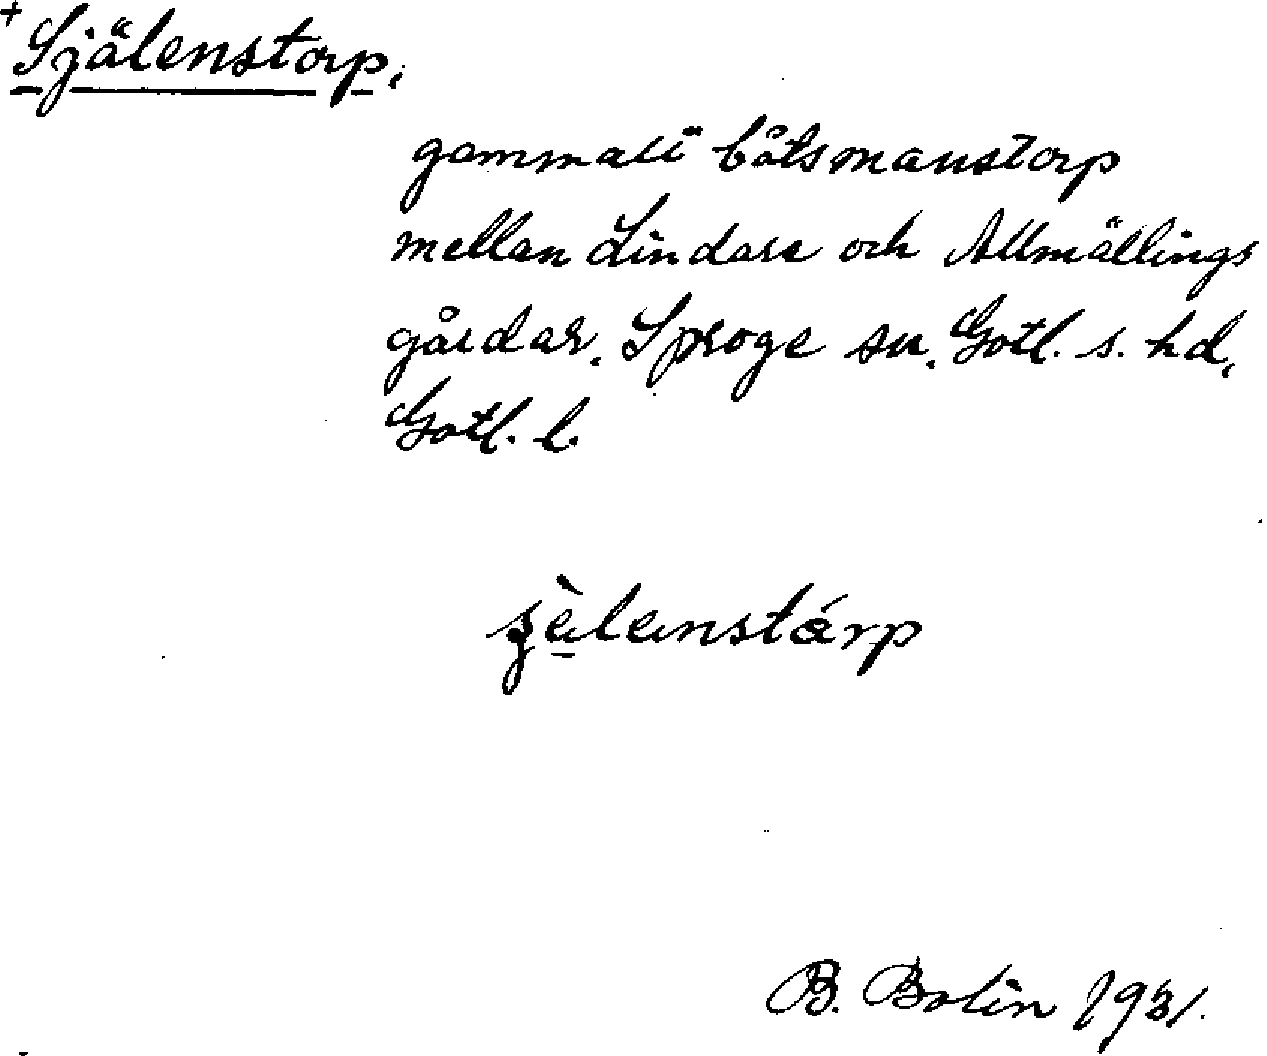 + Själenstorp,
gammalt båtsmanstorp
mellan Lindarve och Allmällings
gårdar, Sproge sn. Gotl. s. hd,
Gotl. l.
B. Bolin 1931.